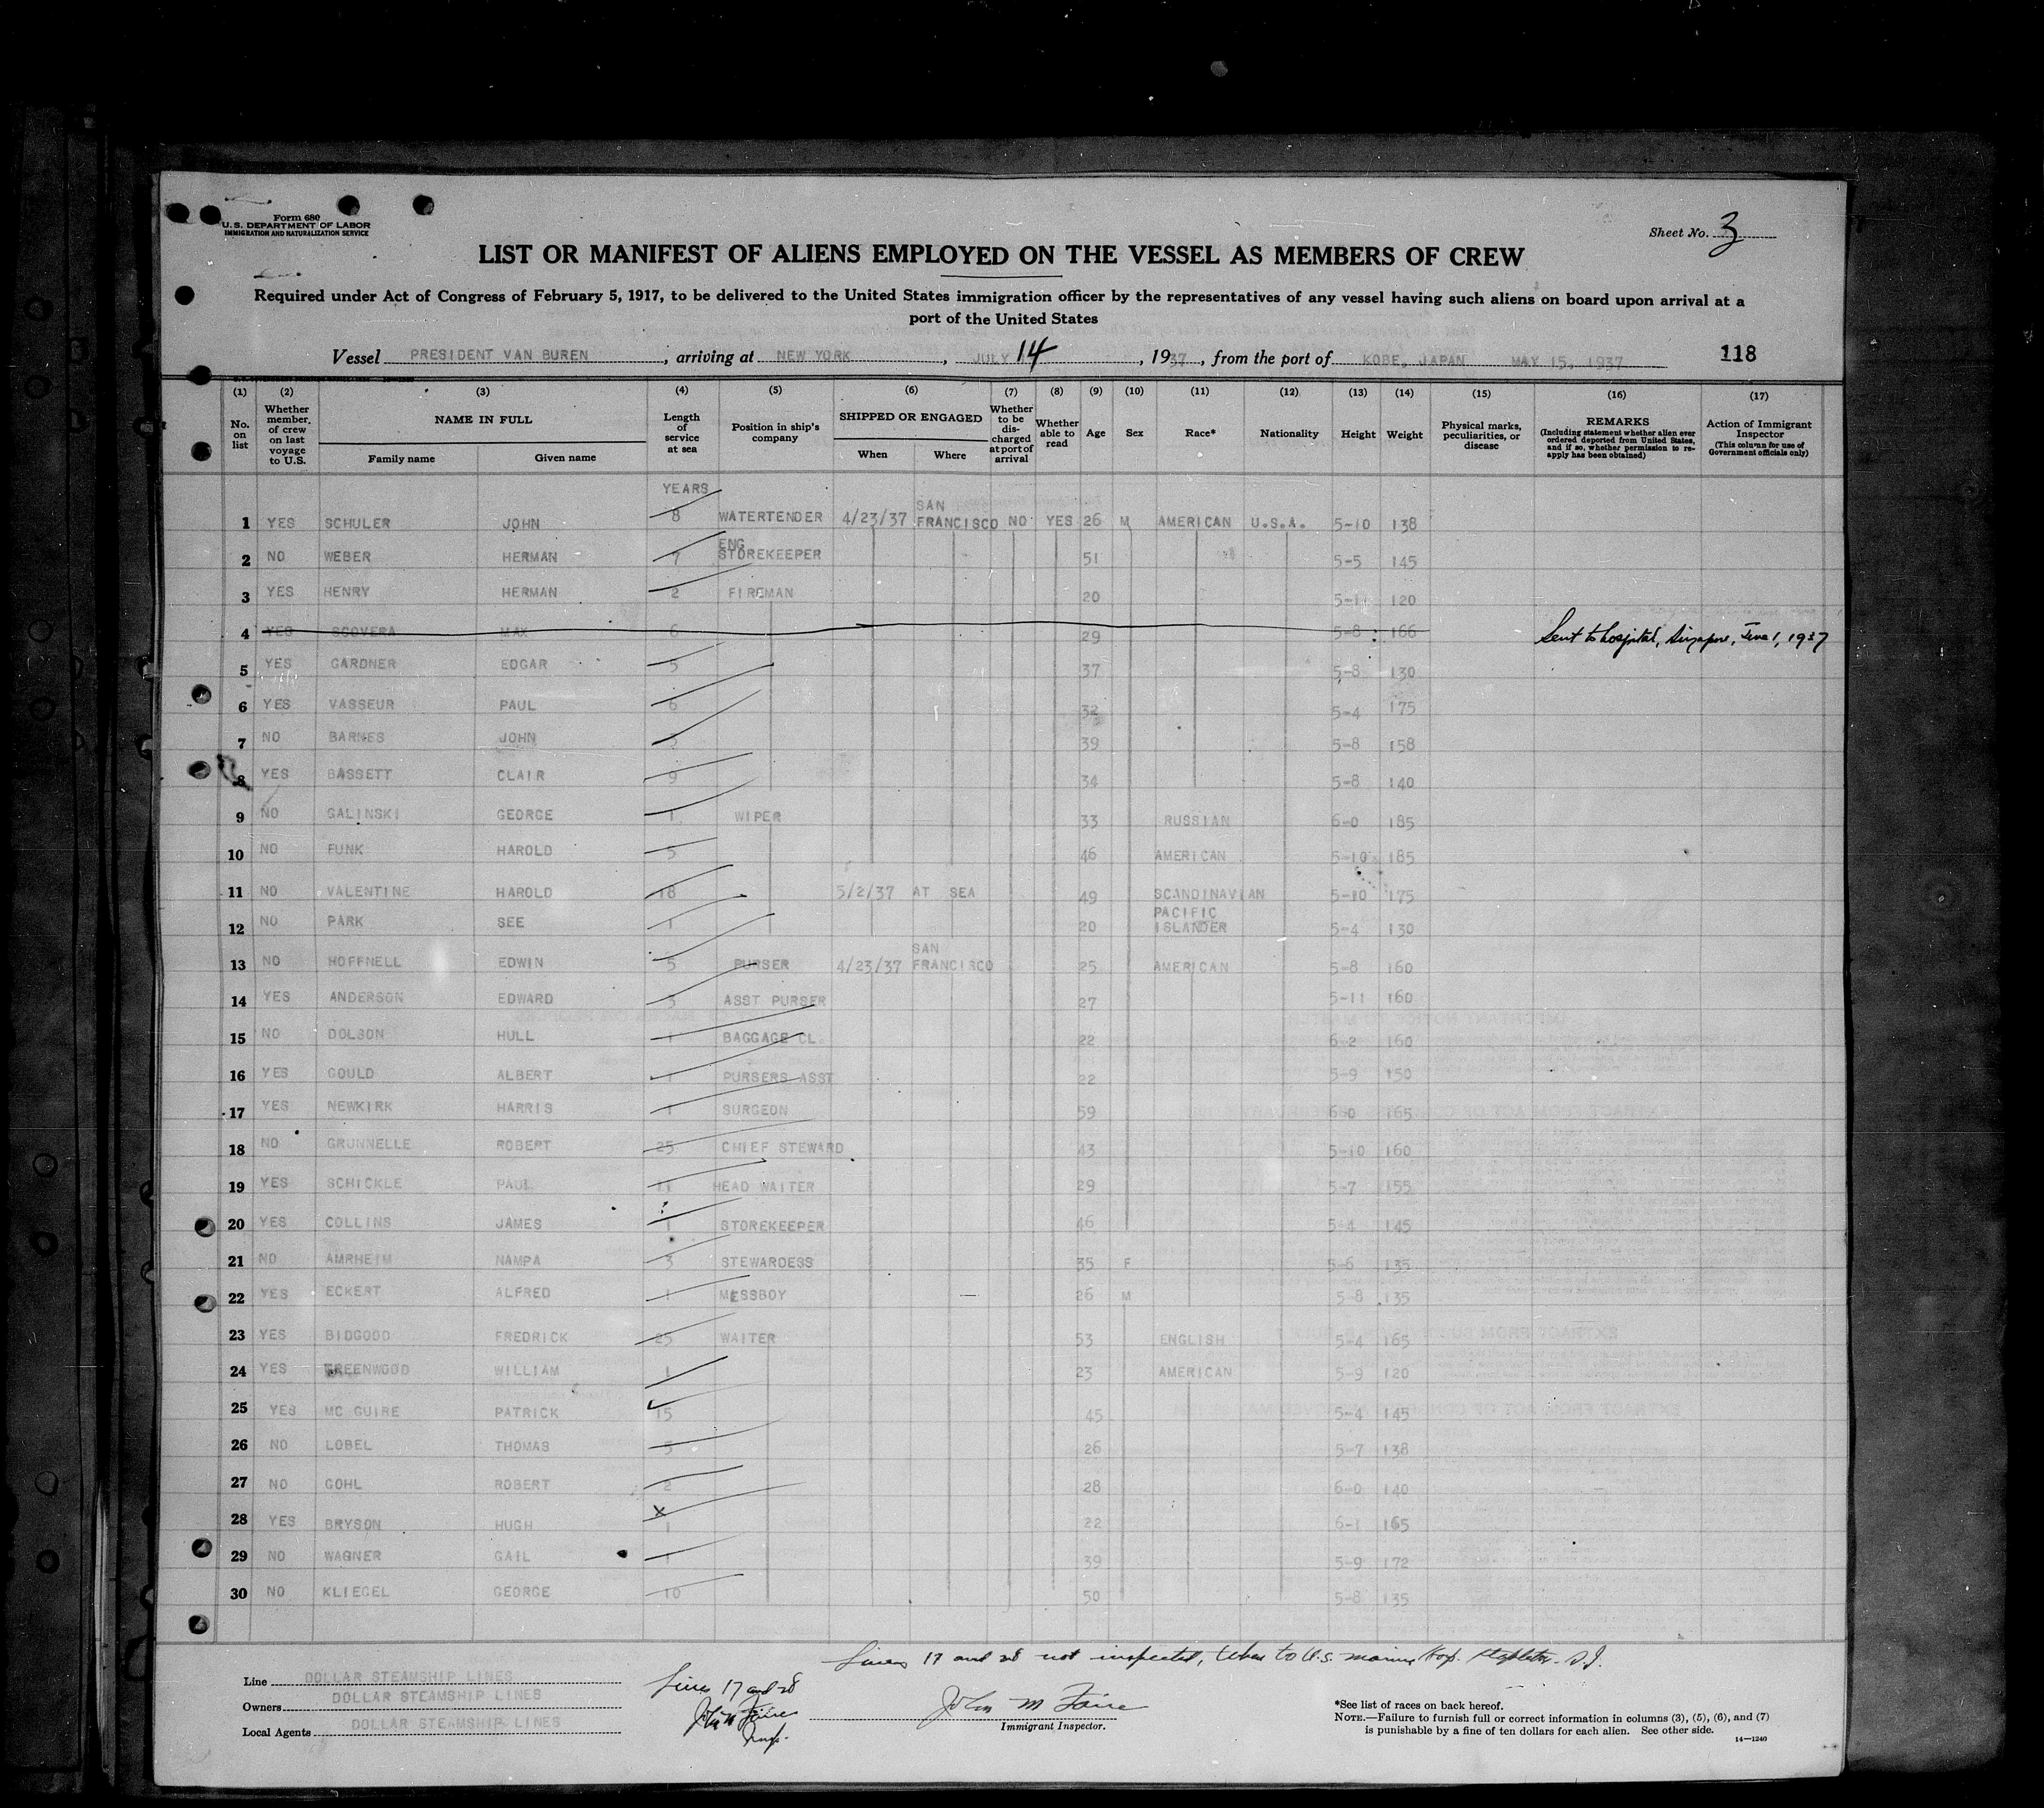 Form 680
U.S. DEPARTMENT OF LABOR
IMMIGRATION AND NATURALIZATION SERVICE
Sheet No. 3
LIST OR MANIFEST OF ALIENS EMPLOYED ON THE VESSEL AS MEMBERS OF CREW
Required under Act of Congress of February 5, 1917, to be delivered to the United States immigration officer by the representatives of any vessel having such aliens on board upon arrival at a
port of the United States
Vessel PRESIDENT VAN BUREN, arriving at NEW YORK, JULY 14, 1937, from the port of KOBE, JAPAN MAY 15, 1937 118
(1) (2) (3) (4) (5) (6) (7) (8) (9) (10) (11) (12) (13) (14) (15) (16) (17)
No. on list
Whether member of crew on last voyage to U.S.
NAME IN FULL
Family name Given name
Length of service at sea
Position in ship's company
SHIPPED OR ENGAGED
When Where
Whether to be discharged at port of arrival
Whether able to read
Age
Sex
Race*
Nationality
Height
Weight
Physical marks, peculiarities, or disease
REMARKS
(Including statement whether alien ever ordered deported from United States, and if so, whether permission to reapply has been obtained)
Action of Immigrant Inspector
(This column for use of Government officials only)
YEARS
1 YES SCHULER JOHN 8 WATERTENDER 4/23/37 SAN FRANCISCO NO YES 26 M AMERICAN U.S.A. 5-10 138
2 NO WEBER HERMAN 7 ENG STOREKEEPER 51 5-5 145
3 YES HENRY HERMAN 2 FIREMAN 20 5-11 120
4 YES SCOVERA MAX 6 29 5-8 166 Sent to hospital, Singapore, June 1, 1937
5 YES GARDNER EDGAR 5 37 5-8 130
6 YES VASSEUR PAUL 6 32 5-4 175
7 NO BARNES JOHN 39 5-8 158
8 YES BASSETT CLAIR 9 34 5-8 140
9 NO GALINSKI GEORGE 1 WIPER 33 RUSSIAN 6-0 185
10 NO FUNK HAROLD 5 46 AMERICAN 5-10 185
11 NO VALENTINE HAROLD 18 5/2/37 AT SEA 49 SCANDINAVIAN 5-10 175
12 NO PARK SEE 1 20 PACIFIC ISLANDER 5-4 130
13 NO HOFFNELL EDWIN 5 PURSER 4/23/37 SAN FRANCISCO 25 AMERICAN 5-8 160
14 YES ANDERSON EDWARD 3 ASST PURSER 27 5-11 160
15 NO DOLSON HULL 1 BAGGAGE CL. 22 6-2 160
16 YES GOULD ALBERT 1 PURSERS ASST 22 5-9 150
17 YES NEWKIRK HARRIS 1 SURGEON 59 6-0 165
18 NO GRUNNELLE ROBERT 25 CHIEF STEWARD 43 5-10 160
19 YES SCHICKLE PAUL 11 HEAD WAITER 29 5-7 155
20 YES COLLINS JAMES 1 STOREKEEPER 46 5-4 145
21 NO AMRHEIM NAMPA 3 STEWARDESS 35 F 5-6 135
22 YES ECKERT ALFRED 1 MESSBOY 26 M 5-8 135
23 YES BIDGOOD FREDRICK 25 WAITER 53 ENGLISH 5-4 165
24 YES GREENWOOD WILLIAM 1 23 AMERICAN 5-9 120
25 YES MC GUIRE PATRICK 15 45 5-4 145
26 NO LOBEL THOMAS 5 26 5-7 138
27 NO GOHL ROBERT 2 28 6-0 140
28 YES BRYSON HUGH X 1 22 6-1 165
29 NO WAGNER GAIL 1 39 5-9 172
30 NO KLIEGEL GEORGE 10 50 5-8 135
Lines 17 and 28 not inspected, taken to U.S. marine Hosp. Stapleton S.I.
Line DOLLAR STEAMSHIP LINES
Owners DOLLAR STEAMSHIP LINES
Local Agents DOLLAR STEAMSHIP LINES
Lines 17 and 28
John M Faire
Insp.
John M Faire
Immigrant Inspector.
*See list of races on back hereof.
NOTE.—Failure to furnish full or correct information in columns (3), (5), (6), and (7)
is punishable by a fine of ten dollars for each alien. See other side.
14—1240